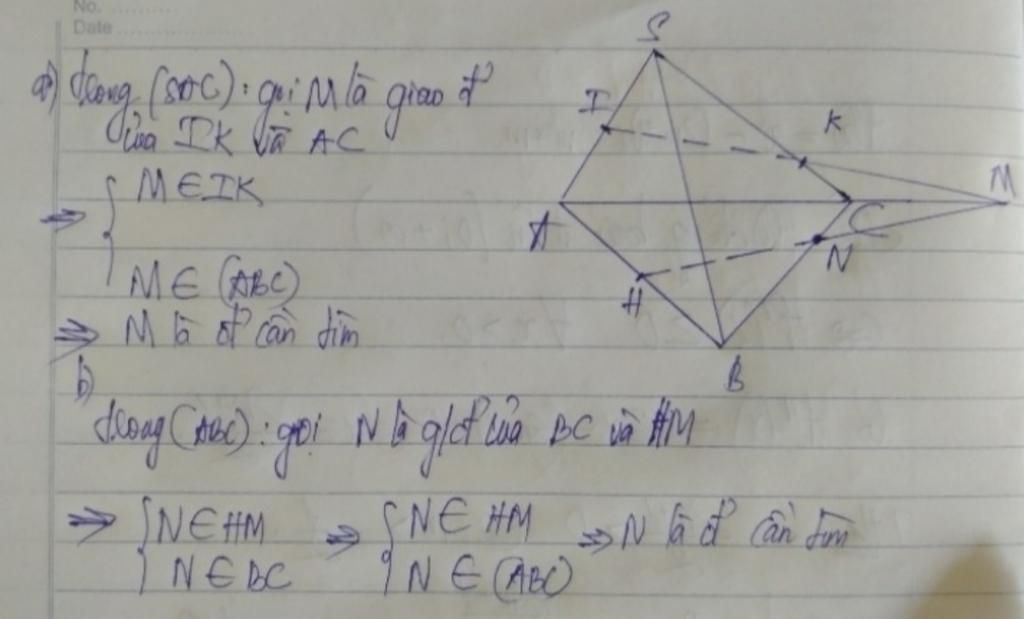 No. ..........
Date ....................
a) trong (SAC): gọi M là giao đ'
của IK và AC
⇒ { M ∈ IK
M ∈ (ABC)
⇒ M là đ' cần tìm
b)
trong (ABC): gọi N là g/đ' của BC và HM
⇒ { N ∈ HM ⇒ { N ∈ HM ⇒ N là đ' cần tìm
N ∈ BC N ∈ (ABC)
S
I
K
M
A
C
N
H
B